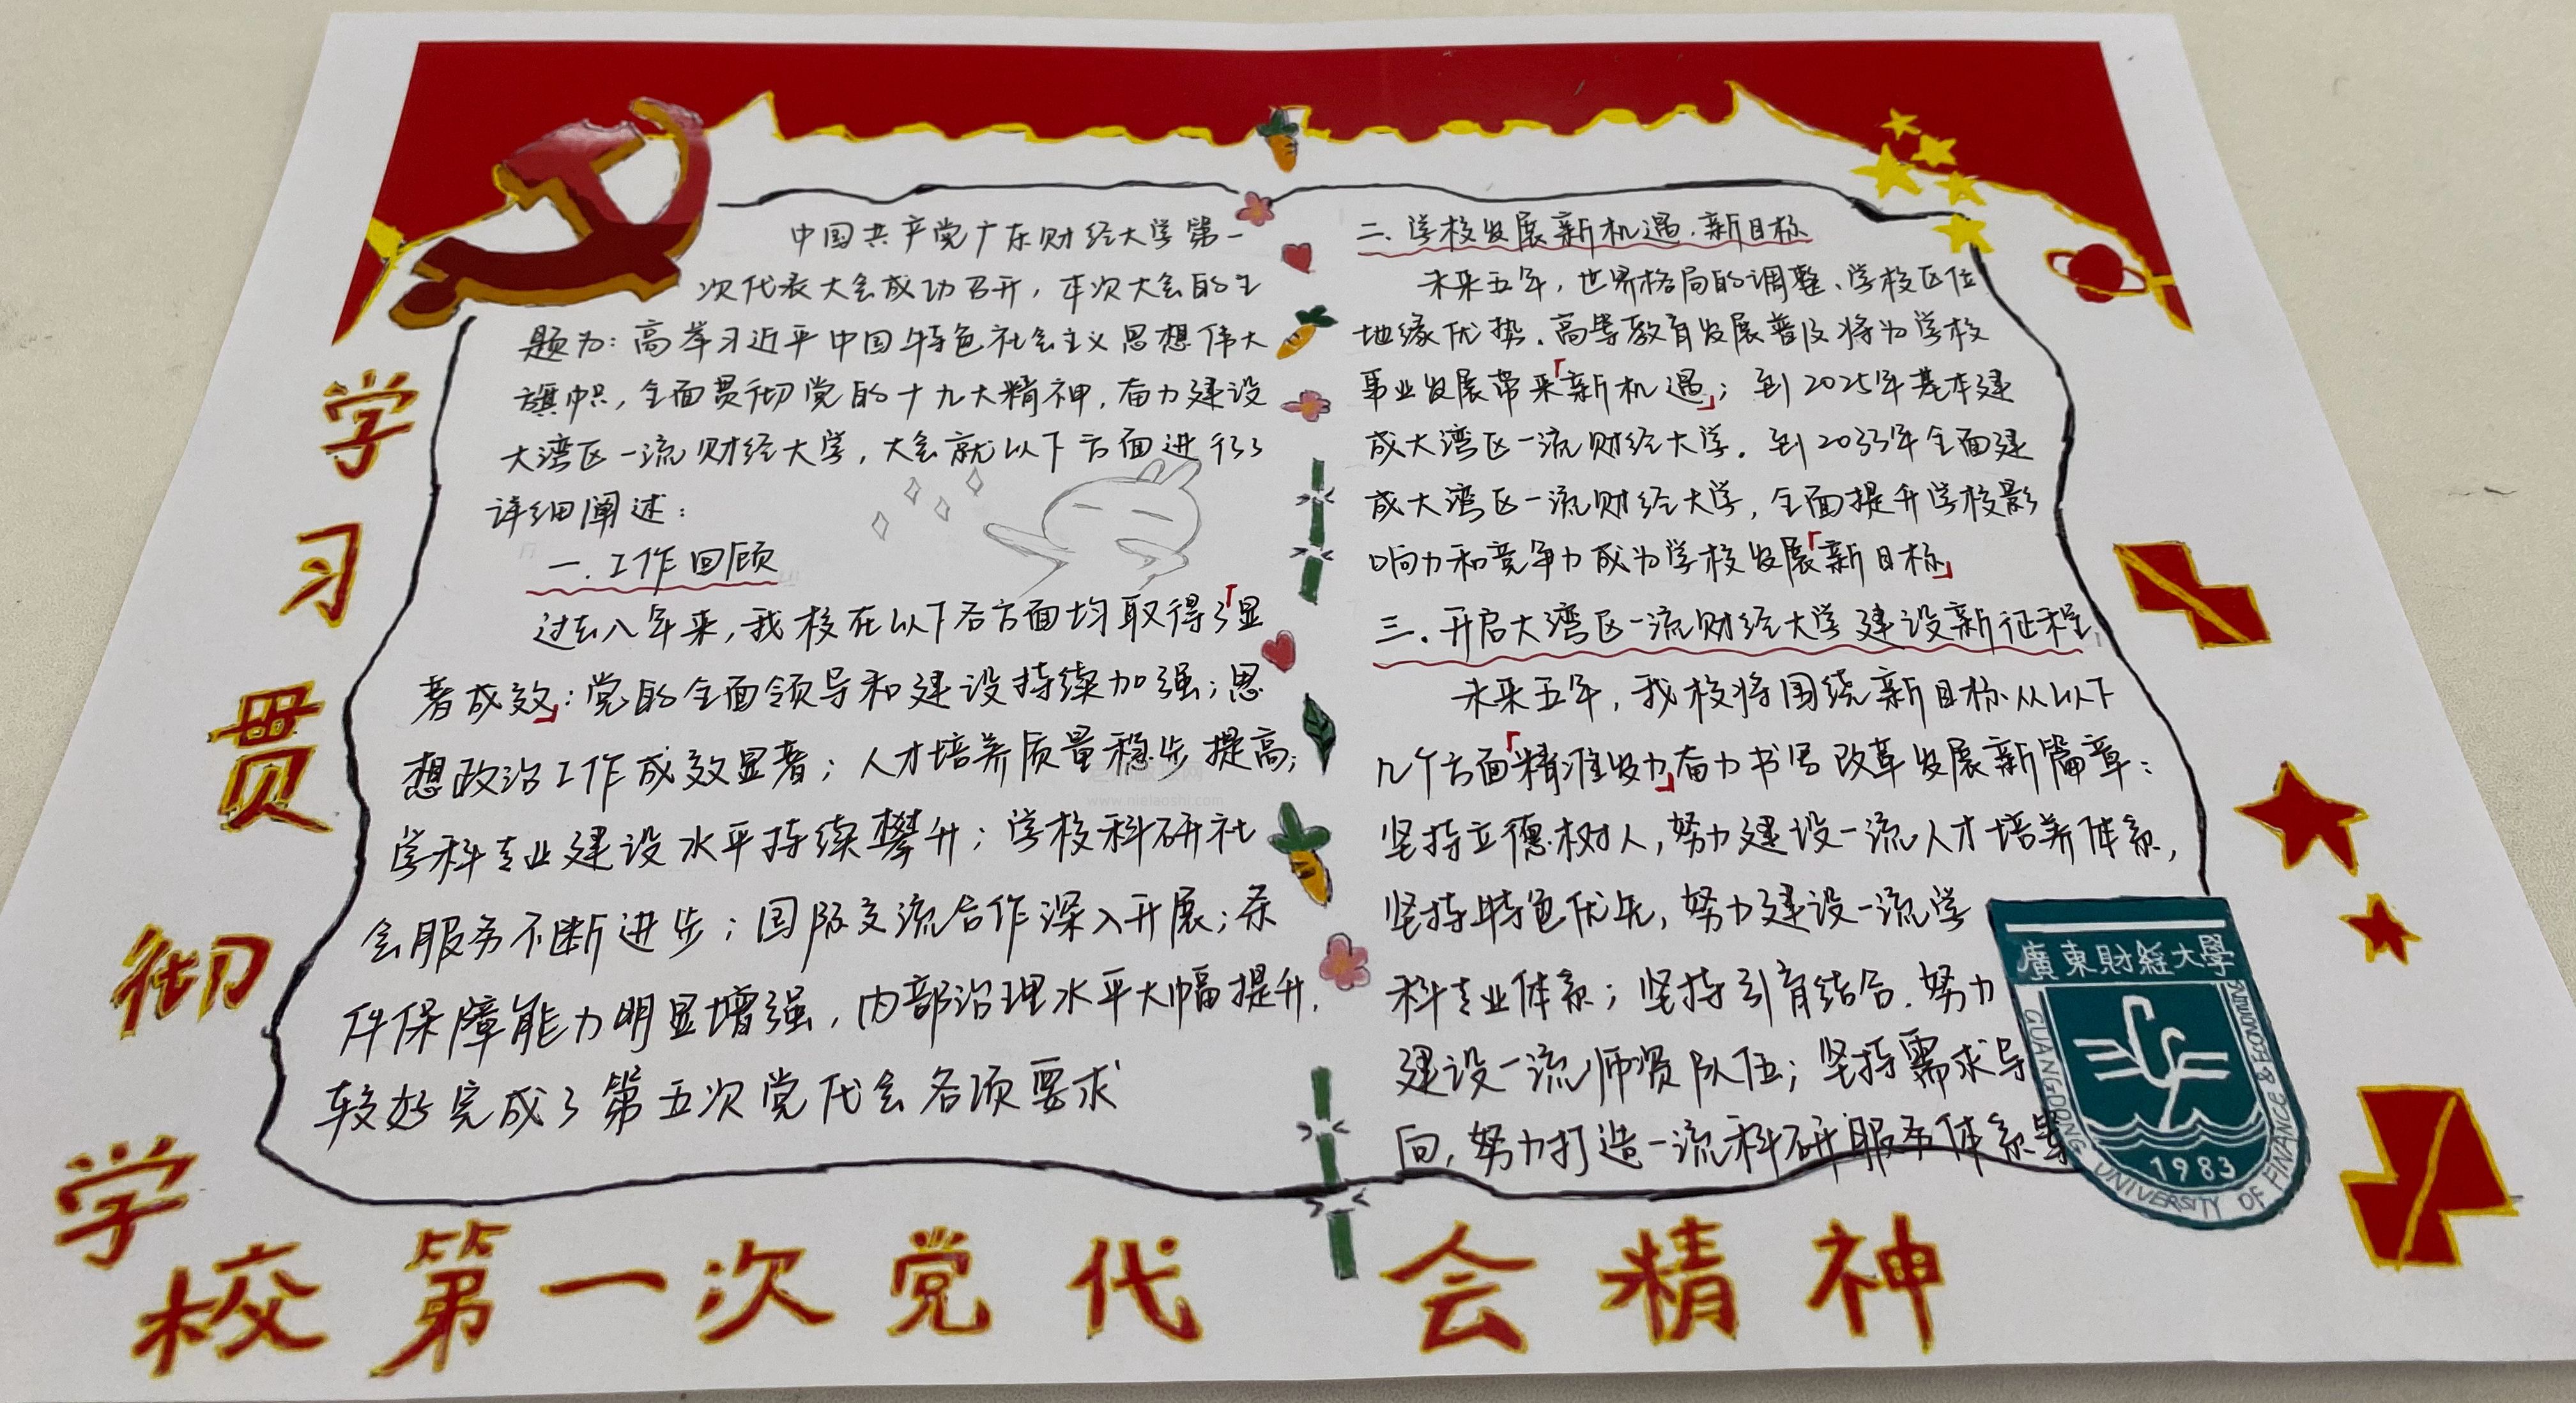 中国共产党广东财经大学第一
次代表大会成功召开，本次大会的主
题为：高举习近平中国特色社会主义思想伟大
旗帜，全面贯彻党的十九大精神，奋力建设
大湾区一流财经大学，大会就以下方面进行了
详细阐述：
一．工作回顾
过去八年来，我校在以下各方面均取得了「显
著成效」：党的全面领导和建设持续加强；思
想政治工作成效显著；人才培养质量稳步提高；
学科专业建设水平持续攀升；学校科研社
会服务不断进步；国际交流合作深入开展；条
件保障能力明显增强，内部治理水平大幅提升，
较好完成了第五次党代会各项要求
二．学校发展新机遇．新目标
未来五年，世界格局的调整、学校区位
地缘优势．高等教育发展普及将为学校
事业发展带来「新机遇」；到2025年基本建
成大湾区一流财经大学．到2035年全面建
成大湾区一流财经大学，全面提升学校影
响力和竞争力成为学校发展「新目标」
三．开启大湾区一流财经大学建设新征程
未来五年，我校将围绕新目标从以下
几个方面「精准发力」奋力书写改革发展新篇章：
坚持立德树人，努力建设一流人才培养体系，
坚持特色优先，努力建设一流学
科专业体系；坚持引育结合．努力
建设一流师资队伍；坚持需求导
向，努力打造一流科研服务体系
学习贯彻学校第一次党代会精神
廣東財經大學
GUANGDONG UNIVERSITY OF FINANCE & ECONOMICS
1983
www.nielaoshi.com